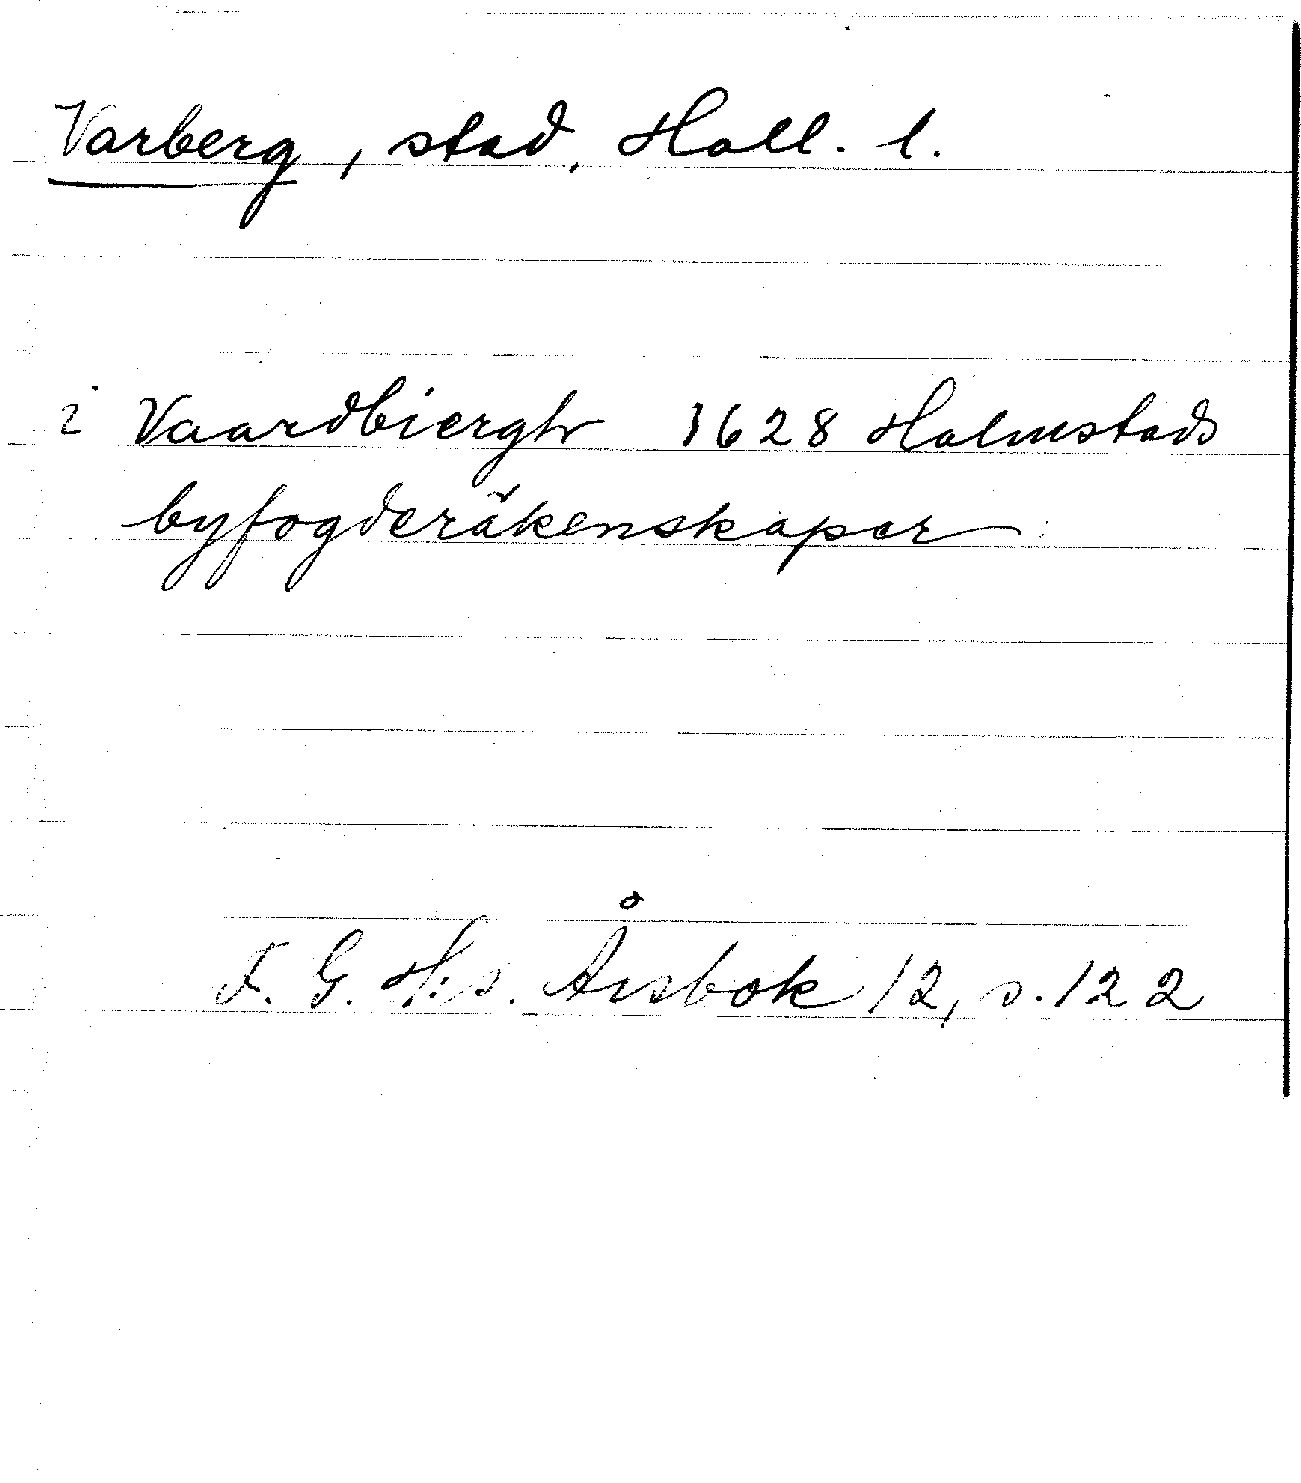 Varberg, stad, Hall. l.
i Vaardbiergh 1628 Halmstads
byfogderäkenskaper
F. G. H:s. Årsbok 12, s. 122